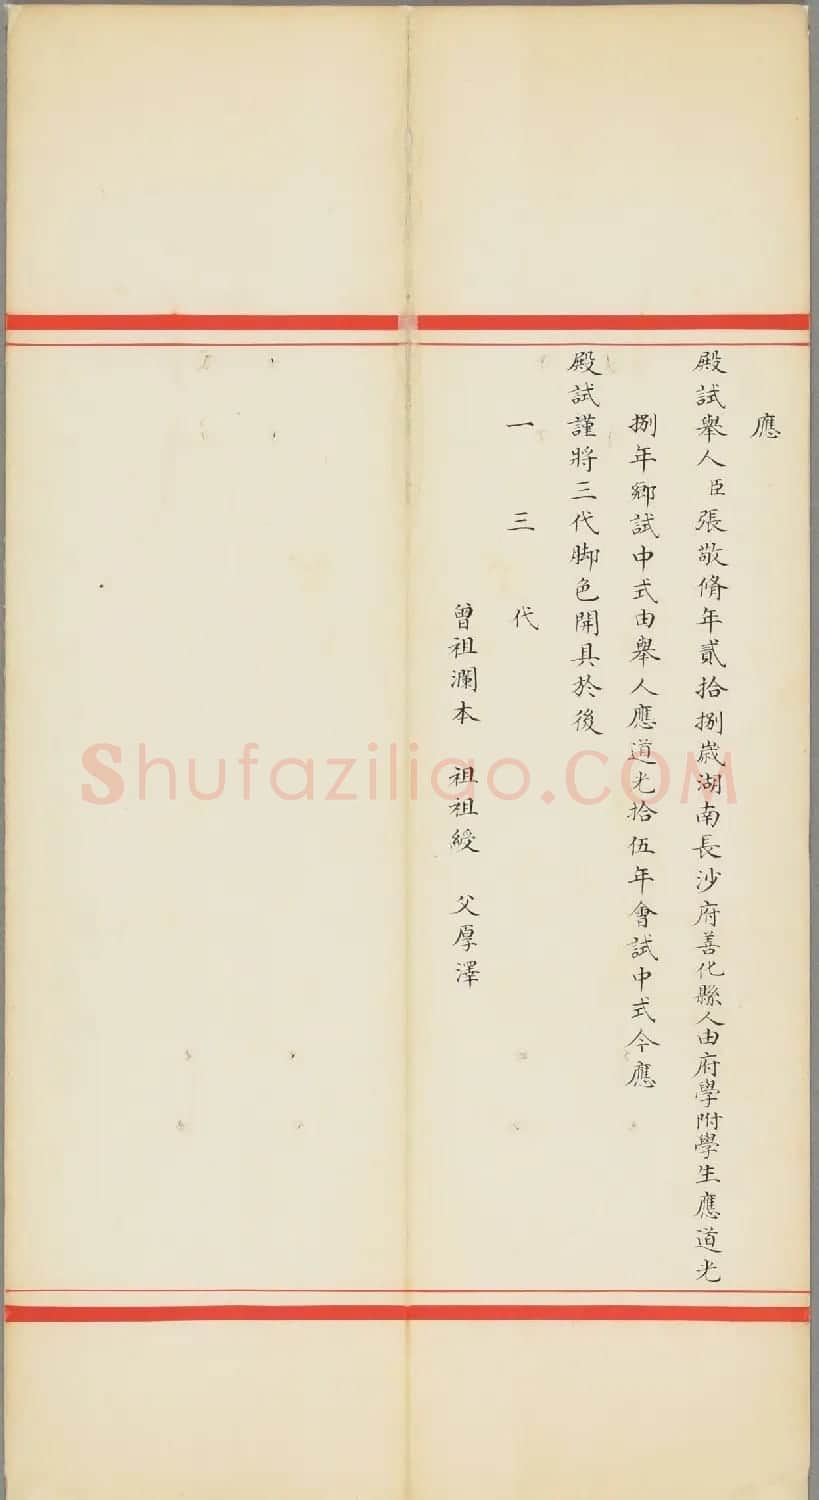 應
殿試舉人臣張敬脩年貳拾捌歲湖南長沙府善化縣人由府學附學生應道光
捌年鄉試中式由舉人應道光拾伍年會試中式今應
殿試謹將三代脚色開具於後
一 三 代
曾祖瀾本 祖祖綬 父厚澤
Shufaziliao.COM